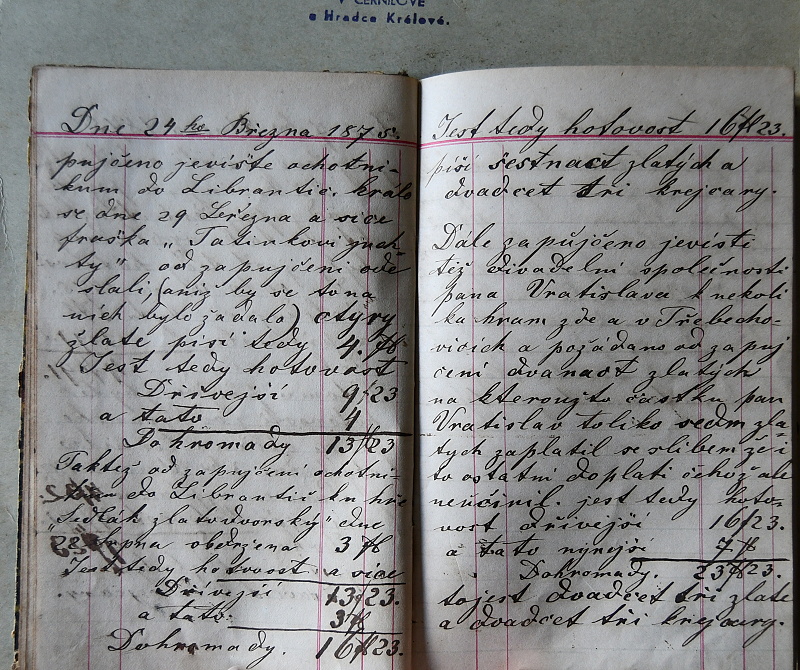 V ČERNILOVĚ
a Hradce Králové.
Dne 24ho Března 1875.
pujčeno jeviště ochotni-
kum do Librantic. hrálo
se dne 29 Března a sice
fraška „Tatínkovi juch
ty" od zapujčeni ode
slali, (aniž by se to na
nich bylo žadalo) čtyry
zlate piši tedy 4. fl
Jest tedy hotovost
Dřivejší 9 f 23
a tato 4
Dohromady 13 fl 23
Taktež od zapujčeni ochotni-
do Librantic ku hře
„Sedlák zlatodvorský" dne
28 srpna obdržena 3 fl
Jest tedy hotovost a sice
Dřívejší 13 f 23.
a tato. 3 fl
Dohromady. 16 fl 23.
Jest tedy hotovost 16 fl 23.
piši šestnact zlatých a
dvadcet tři krejcary.
Dále zapůjčeno jevisti
též divadelni společnosti
pana Vratislava k nekoli
ka hram zde a v Třebecho-
vicich a požádano od zapuj
čeni dvanact zlatých
na kteroužto častku pan
Vratislav toliko sedm zla-
tych zaplatil se slibem že i
to ostatni doplati čehož ale
neučinil. jest tedy hoto-
vost dřivejší 16 f 23.
a tato nynejší 7 fl
Dohromady. 23 fl 23.
tojest dvadcet tři zlate
a dvadcet tři krejcary.